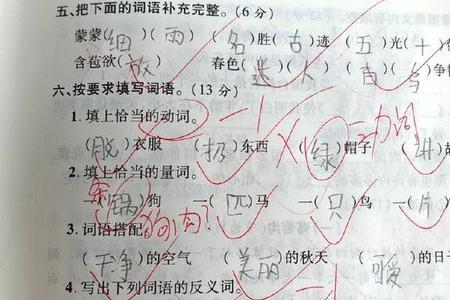 五、把下面的词语补充完整。(6分)
蒙蒙(细)(雨) (名)胜(古)迹 (五)光(十)
含苞欲(放) 春色(迷)(人) (百)(鸟)争
六、按要求填写词语。(13分)
1.填上恰当的动词。 一1
(脱)衣服 (扔)东西 (绿)帽子 一动词
2.填上恰当的量词。
一(锅)狗 一(匹)马 一(只)鸟 一(片)
3.词语搭配 狗肉?
(干净)的空气 (美丽)的秋天 (暖)的日
4.写出下列词语的反义词。